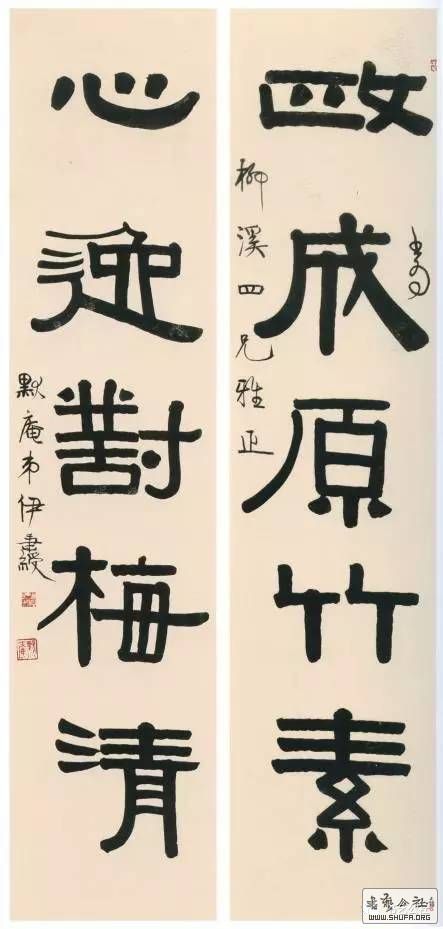 政成原竹素
書為
柳溪四兄雅正
心迹對梅清
默庵弟伊秉綬
书艺公社
WWW.SHUFA.ORG